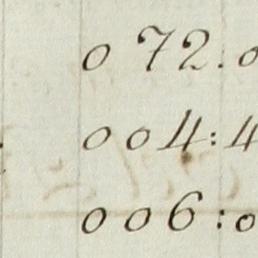 0 72.0
0 0 4:4
0 0 6:0